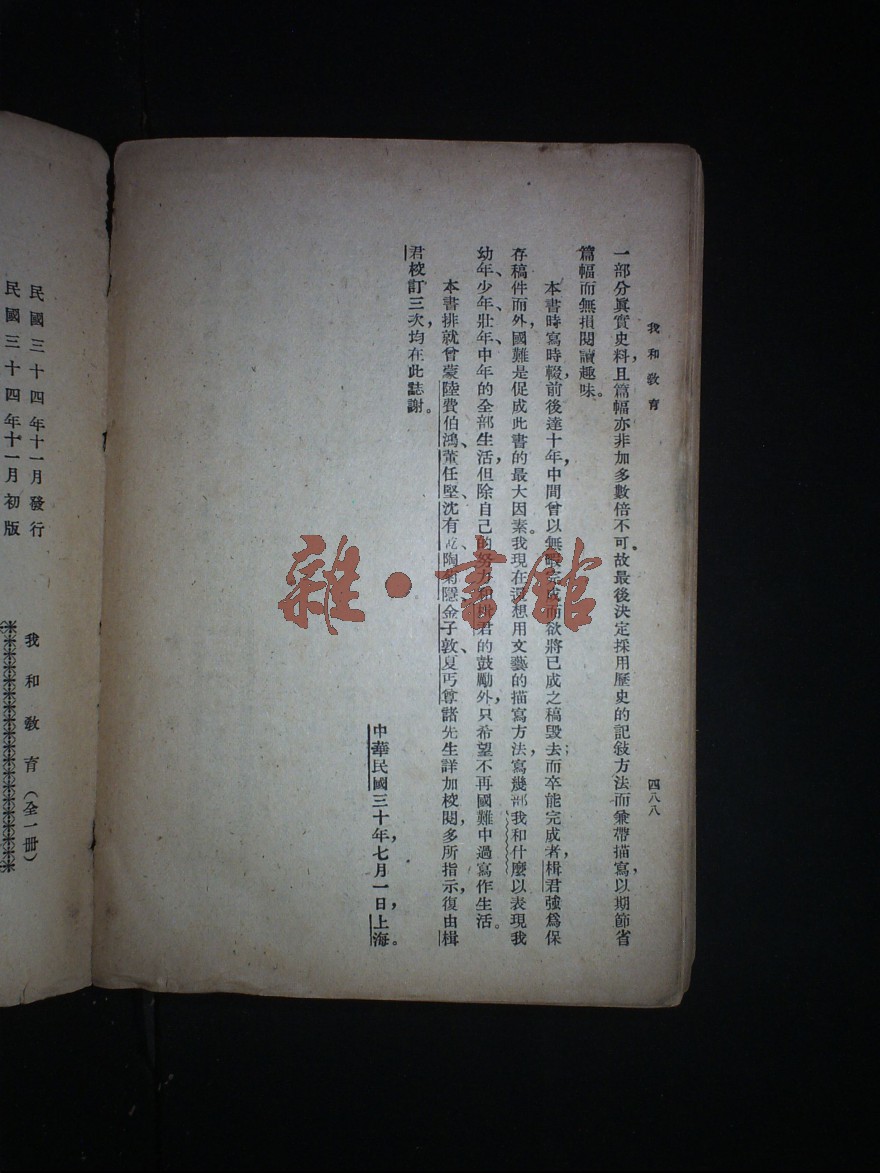 我和教育
四八八
一部分眞實史料,且篇幅亦非加多數倍不可。故最後決定採用歷史的記敍方法而兼帶描寫,以期節省
篇幅而無損閱讀趣味。
本書時寫時輟,前後達十年,中間曾以無暇完成而欲將已成之稿毀去;而卒能完成者,楫君強爲保
存稿件而外,國難是促成此書的最大因素。我現在還想用文藝的描寫方法,寫幾部我和什麼以表現我
幼年、少年、壯年、中年的全部生活,但除自己的努力和楫君的鼓勵外,只希望不再國難中過寫作生活。
本書排就曾蒙陸費伯鴻、董任堅、沈有乾、陶菊隱、金子敦、夏丏尊諸先生詳加校閱,多所指示,復由楫
君校訂三次,均在此誌謝。
中華民國三十年,七月一日,上海。
民國三十四年十一月發行
民國三十四年十一月初版
我和敎育(全一冊)
雜·書館